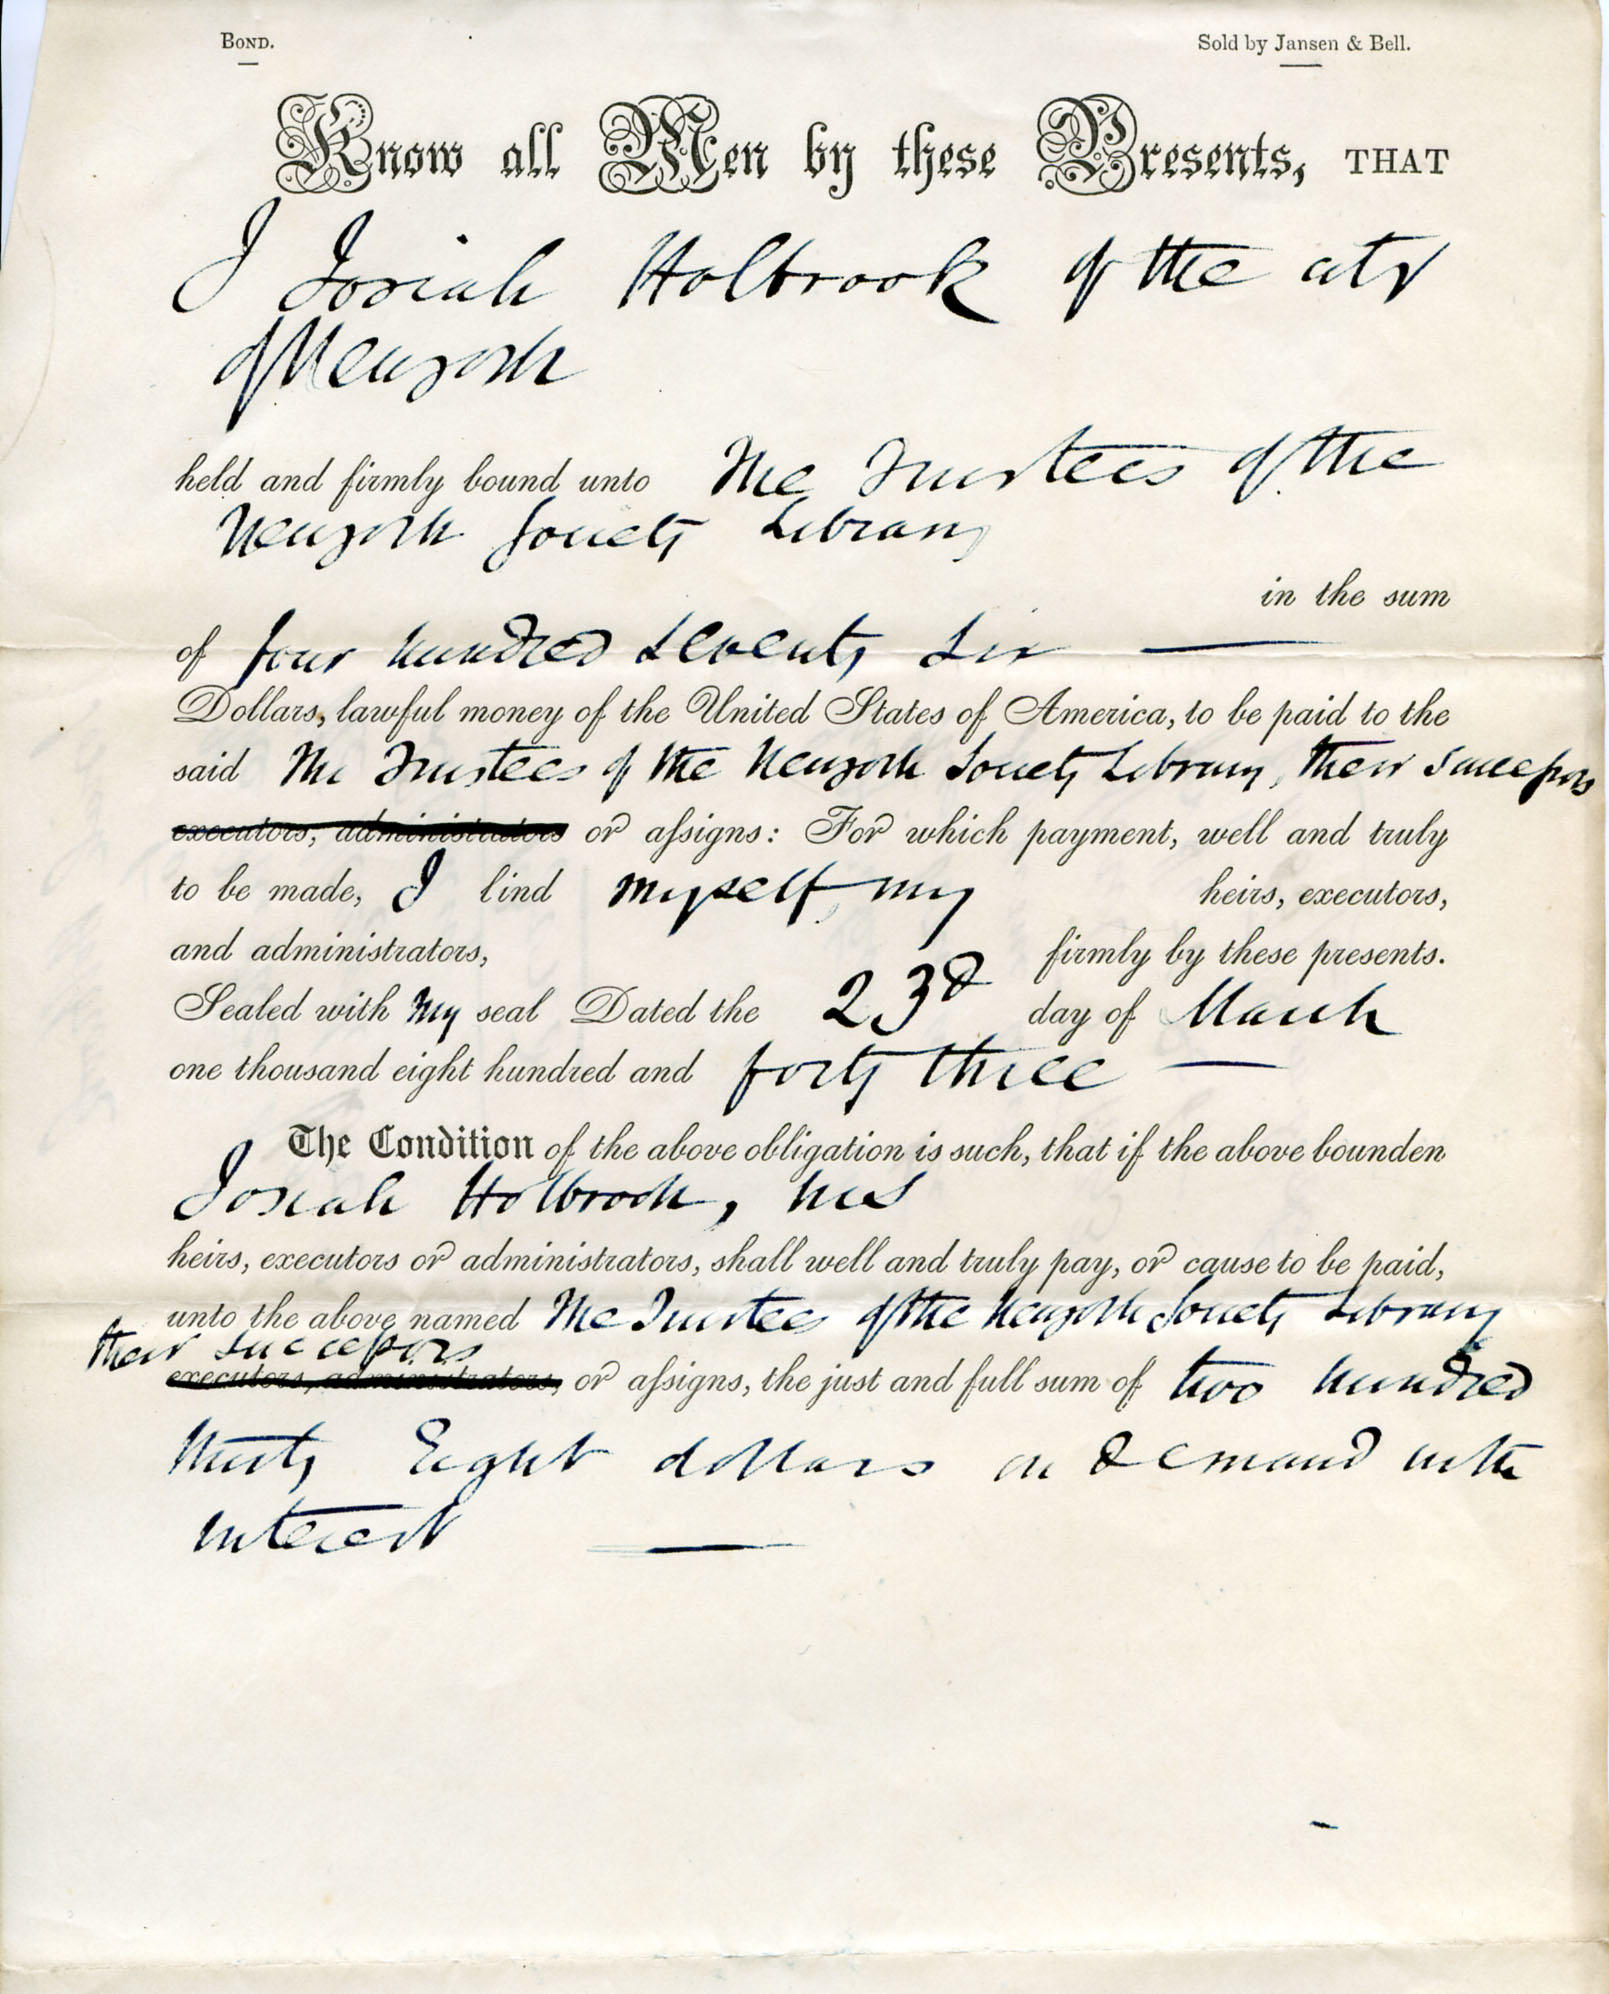 BOND.
Sold by Jansen & Bell.
Know all Men by these Presents, THAT
I Josiah Holbrook of the city
of Newyork
held and firmly bound unto The Trustees of the
Newyork Society Library
in the sum
of four hundred seventy six
Dollars, lawful money of the United States of America, to be paid to the
said The Trustees of the Newyork Society Library, their successors
executors, administrators or assigns: For which payment, well and truly
to be made, I bind myself, my heirs, executors,
and administrators, firmly by these presents.
Sealed with my seal Dated the 23d day of March
one thousand eight hundred and forty three
The Condition of the above obligation is such, that if the above bounden
Josiah Holbrook, his
heirs, executors or administrators, shall well and truly pay, or cause to be paid,
unto the above named The Trustees of the Newyork Society Library
their successors
executors, administrators, or assigns, the just and full sum of two hundred
thirty Eight dollars on demand with
interest